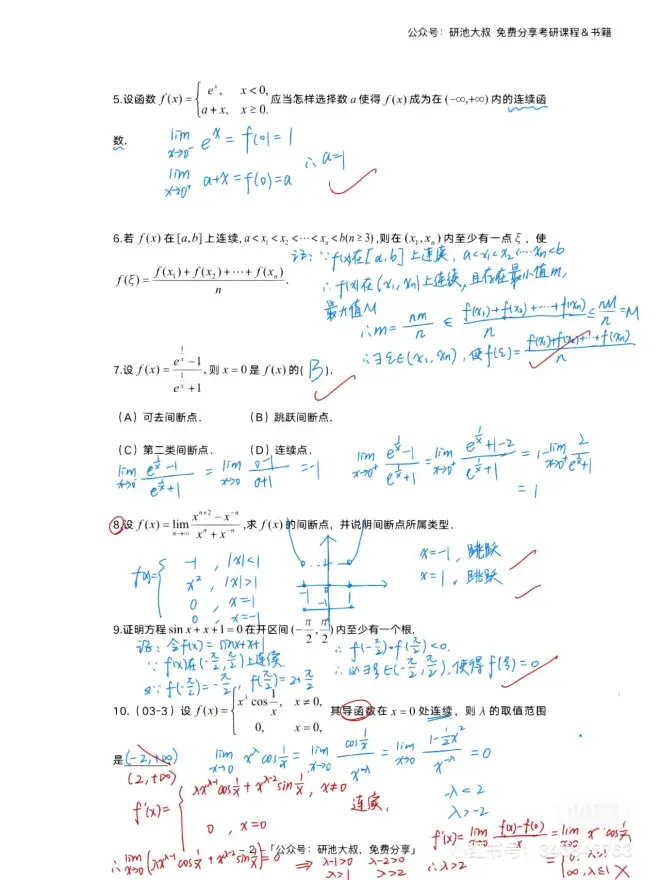 公众号：研池大叔 免费分享考研课程＆书籍
5.设函数 f(x) = { e^x, x<0, a+x, x≥0. 应当怎样选择数 a 使得 f(x) 成为在 (-∞,+∞) 内的连续函
数.
lim x→0⁻ e^x = f(0) = 1
∴ a=1
lim x→0⁺ a+x = f(0) = a
6.若 f(x) 在 [a,b] 上连续, a<x₁<x₂<⋯<xₙ<b(n≥3) ,则在 (x₁,xₙ) 内至少有一点 ξ ，使
f(ξ) = (f(x₁)+f(x₂)+⋯+f(xₙ))/n .
证：∵ f(x)在[a,b]上连续，a<x₁<x₂⋯xₙ<b
∴ f(x)在(x₁,xₙ)上连续，且存在最小值m，
最大值M
∴ m = nm/n ≤ (f(x₁)+f(x₂)+⋯+f(xₙ))/n ≤ nM/n = M
∴ ∃ ξ∈(x₁,xₙ)，使f(ξ) = (f(x₁)+f(x₂)+⋯+f(xₙ))/n
7.设 f(x) = (e^(1/x) -1)/(e^(1/x) +1) , 则 x=0 是 f(x) 的( B ).
（A）可去间断点． （B）跳跃间断点．
（C）第二类间断点． （D）连续点．
lim x→0⁻ (e^(1/x) -1)/(e^(1/x)+1) = lim x→0 (0-1)/(0+1) = -1
lim x→0⁺ (e^(1/x) -1)/(e^(1/x)+1) = lim x→0⁺ (e^(1/x)+1-2)/(e^(1/x)+1) = 1-lim x→0⁺ 2/(e^(1/x)+1)
= 1
8.设 f(x) = lim n→∞ (x^(n+2) - x^(-n))/(x^n + x^(-n)) ,求 f(x) 的间断点，并说明间断点所属类型．
f(x)= { -1 , |x|<1
x² , |x|>1
0 , x=1
0 , x=-1
-1 1
x=-1，跳跃
x=1，跳跃
9.证明方程 sin x + x +1 = 0 在开区间 (-π/2, π/2) 内至少有一个根．
证：令f(x) = sinx+x+1
∵ f(x)在(-π/2, π/2)上连续.
又∵ f(-π/2) = -π/2 f(π/2) = 2+π/2
∴ f(-π/2)·f(π/2) <0.
∴ 必∃ξ∈(-π/2, π/2), 使得f(ξ) = 0
10.（03-3）设 f(x) = { x^λ cos 1/x, x≠0, 0, x=0, 其导函数在 x=0 处连续，则 λ 的取值范围
是 (-2,+∞)
(2,+∞)
lim x→0 x^λ cos 1/x = lim x→0 cos 1/x / x^(-λ) = lim x→0 (1-½x²)/x^(-λ) = 0
-λ<2
λ>-2
f'(x)= { λx^(λ-1) cos 1/x + x^(λ-2) sin 1/x , x≠0
0 , x=0
连续,
f'(x)= lim x→0 (f(x)-f(0))/x = lim x→0 x^(λ-1) cos 1/x
= { 0, λ>1
∞, λ≤1 ×
∴ lim x→0 (λx^(λ-1) cos 1/x + x^(λ-2) sin 1/x) = 0 ⇒ λ-1>0 λ-2>0
λ>1 λ>2
∴ λ>2
- 2 -「公众号：研池大叔，免费分享」
小红书号：